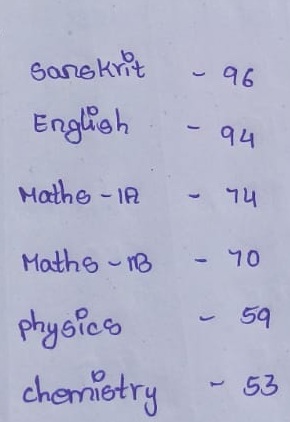 Sanskrit - 96
English - 94
Maths - 1A - 74
Maths - 1B - 70
physics - 59
chemistry - 53